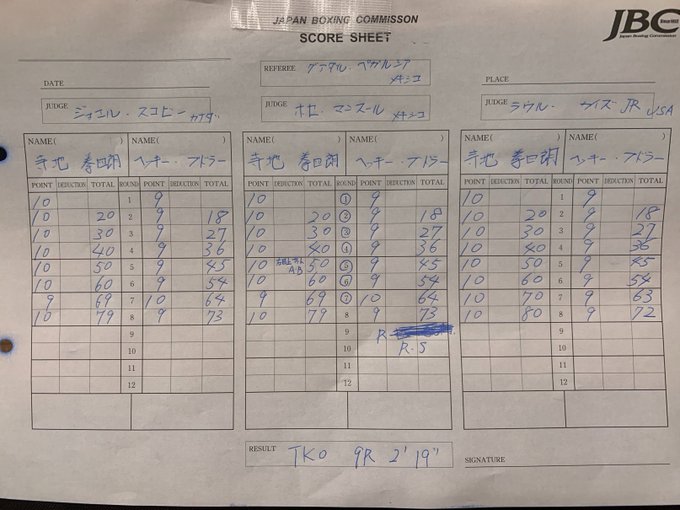 JAPAN BOXING COMMISSON
SCORE SHEET
JBC Since 1952
Japan Boxing Commission
REFEREE グアダル・ベガルシア メキシコ
DATE
PLACE
JUDGE ジョエル・スコビー カナダ
JUDGE ホセ・マンスール メキシコ
JUDGE ラウル・カイズJR USA
NAME( ) NAME( ) NAME( ) NAME( ) NAME( ) NAME( )
寺地 拳四朗 ヘッキー・ブドラー 寺地 拳四朗 ヘッキー・ブドラー 寺地 拳四朗 ヘッキー・ブドラー
POINT DEDUCTION TOTAL ROUND POINT DEDUCTION TOTAL POINT DEDUCTION TOTAL ROUND POINT DEDUCTION TOTAL POINT DEDUCTION TOTAL ROUND POINT DEDUCTION TOTAL
10 1 9 10 1 9 10 1 9
10 20 2 9 18 10 20 2 9 18 10 20 2 9 18
10 30 3 9 27 10 30 3 9 27 10 30 3 9 27
10 40 4 9 36 10 40 4 9 36 10 40 4 9 36
10 50 5 9 45 10 AB 50 5 9 45 10 50 5 9 45
10 60 6 9 54 10 60 6 9 54 10 60 6 9 54
9 69 7 10 64 9 69 7 10 64 10 70 7 9 63
10 79 8 9 73 10 79 8 9 73 10 80 8 9 72
9 9 R 9
10 10 R.S 10
11 11 11
12 12 12
RESULT TKO 9R 2'19"
SIGNATURE